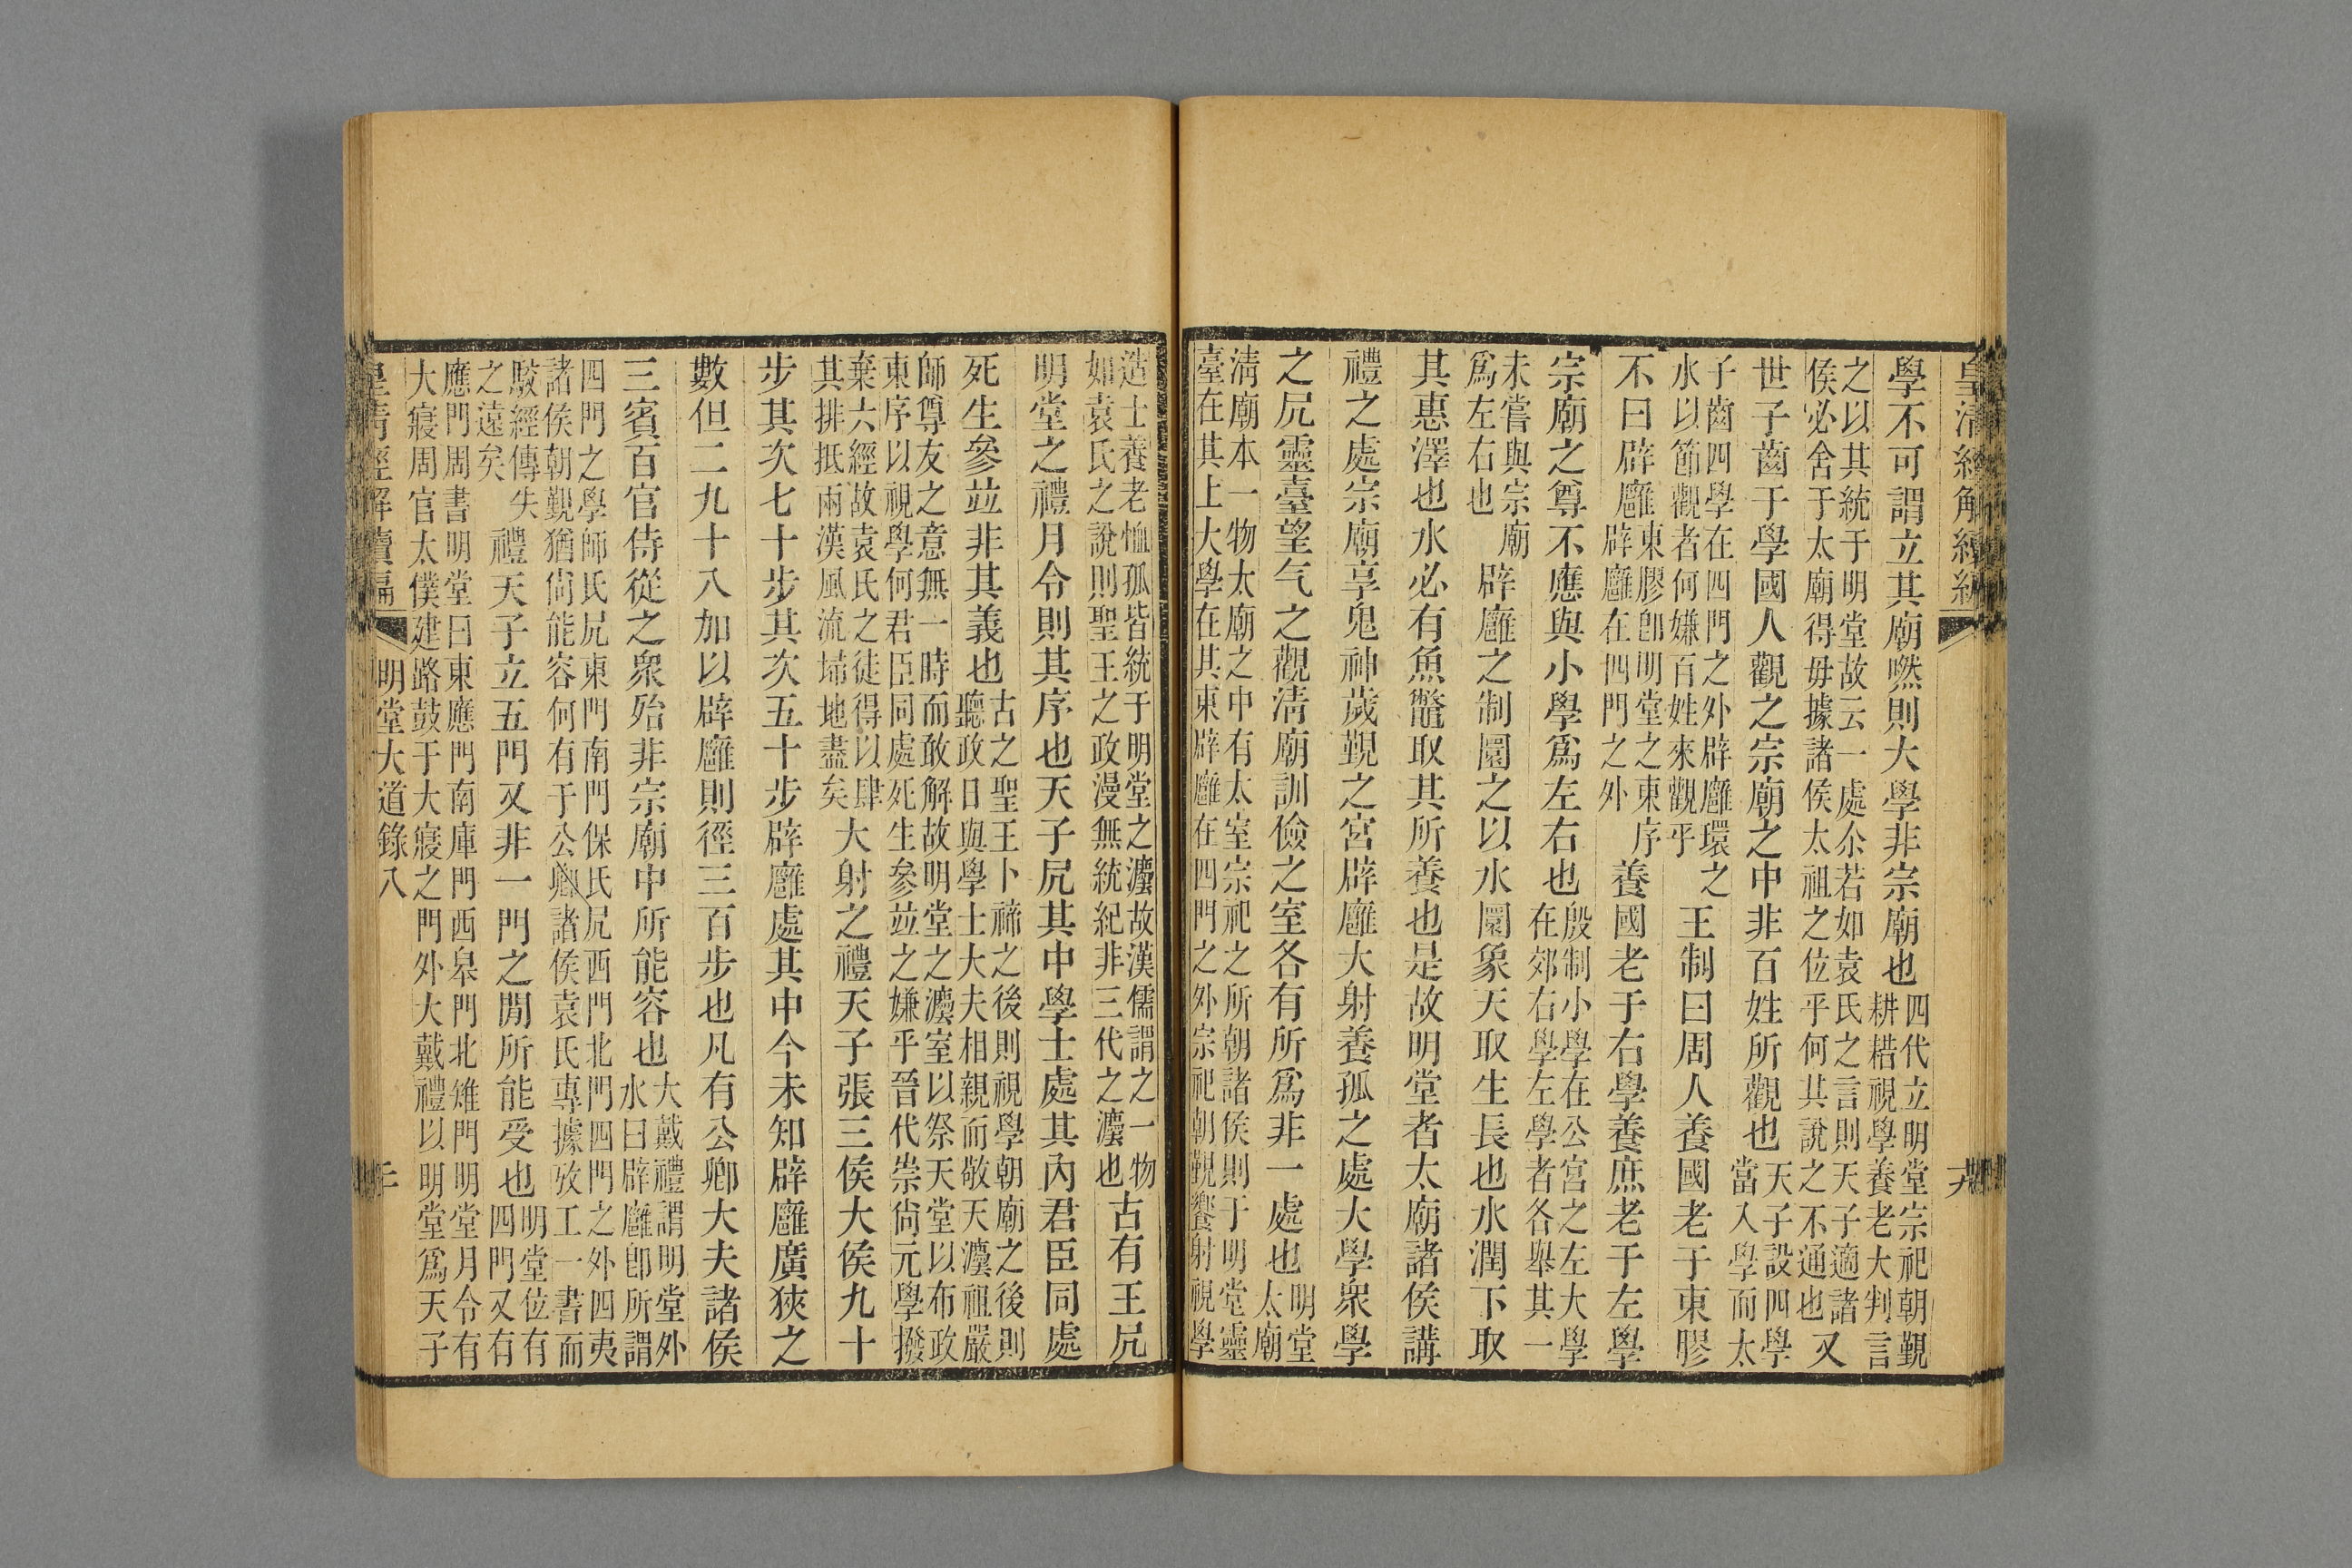 皇清經解續編
學不可謂立其廟嘫則大學非宗廟也四代立明堂宗祀朝覲
耕耤視學養老大判言
之以其統于明堂故云一處尒若如袁氏之言則天子適諸
侯必舍于太廟得毋據諸侯太祖之位乎何其說之不通也又
世子齒于學國人觀之宗廟之中非百姓所觀也天子設四學
當入學而太
子齒四學在四門之外辟廱環之
水以節觀者何嫌百姓來觀乎王制曰周人養國老于東膠
不曰辟廱東膠卽明堂之東序
辟廱在四門之外養國老于右學養庶老于左學
宗廟之尊不應與小學爲左右也殷制小學在公宮之左大學
在郊右學左學者各舉其一
未嘗與宗廟
爲左右也辟廱之制圜之以水圜象天取生長也水潤下取
其惠澤也水必有魚鼈取其所養也是故明堂者太廟諸侯講
禮之處宗廟享鬼神歲覲之宮辟廱大射養孤之處大學衆學
之凥靈臺望气之觀淸廟訓儉之室各有所爲非一處也明堂
太廟
淸廟本一物太廟之中有太室宗祀之所朝諸侯則于明堂靈
臺在其上大學在其東辟廱在四門之外宗祀朝覲饗射視學
造士養老恤孤皆統于明堂之灋故漢儒謂之一物
如袁氏之說則聖王之政漫無統紀非三代之灋也古有王凥
明堂之禮月令則其序也天子凥其中學士處其內君臣同處
死生參竝非其義也古之聖王卜禘之後則視學朝廟之後則
聽政日與學士大夫相親而敬天灋祖嚴
師尊友之意無一時而敢解故明堂之灋室以祭天堂以布政
東序以視學何君臣同處死生參竝之嫌乎晉代崇尙元學撥
棄六經故袁氏之徒得以肆
其排抵兩漢風流埽地盡矣大射之禮天子張三侯大侯九十
步其次七十步其次五十步辟廱處其中今未知辟廱廣狹之
數但二九十八加以辟廱則徑三百步也凡有公卿大夫諸侯
三賓百官侍從之衆殆非宗廟中所能容也大戴禮謂明堂外
水曰辟廱卽所謂
四門之學師氏凥東門南門保氏凥西門北門四門之外四夷
諸侯朝覲猶尙能容何有于公卿諸侯袁氏專據攷工一書而
駮經傳失
之遠矣禮天子立五門又非一門之閒所能受也明堂位有
四門又有
應門周書明堂曰東應門南庫門西皋門北雉門明堂月令有
大寢周官太僕建路鼓于大寢之門外大戴禮以明堂爲天子
皇清經解續編
明堂大道錄八